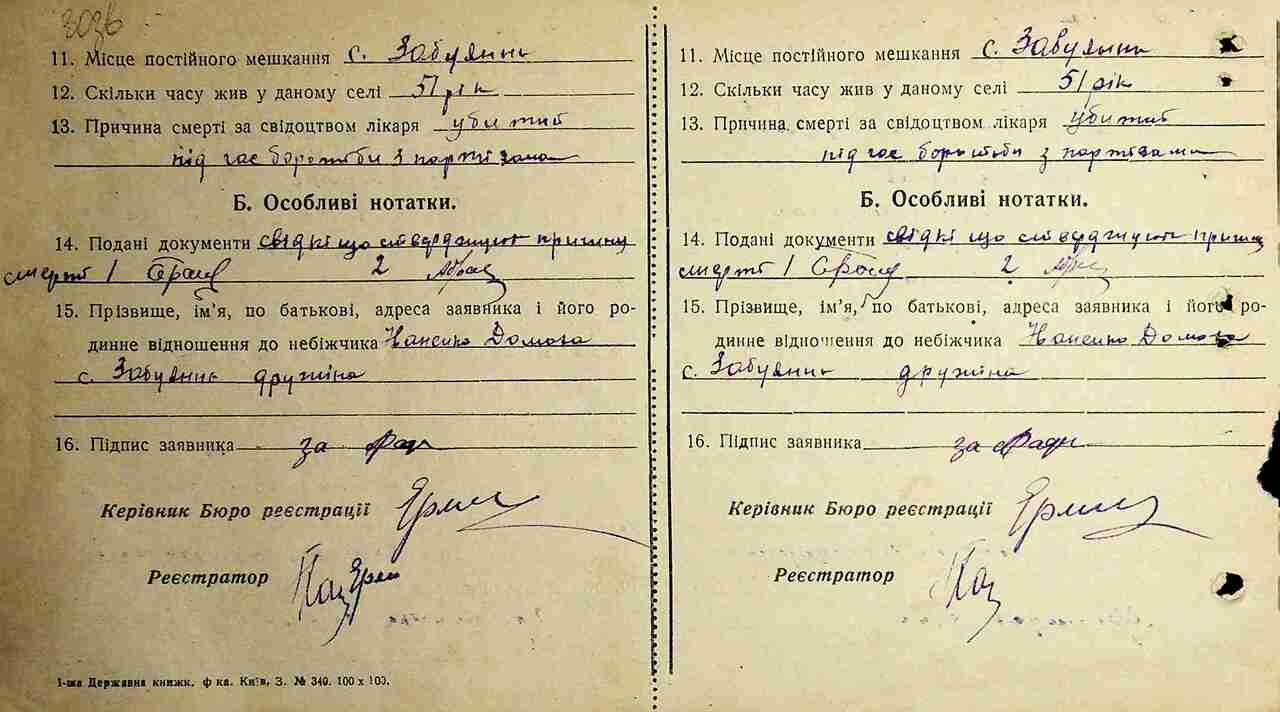 303б
11. Місце постійного мешкання с. Забуяння
12. Скільки часу жив у даному селі 51 рік
13. Причина смерті за свідоцтвом лікаря убитий
під час боротьби з партізана
Б. Особливі нотатки.
14. Подані документи свідкі що стверджують причину
смерті 1 2
15. Прізвище, ім’я, по батькові, адреса заявника і його ро-
динне відношення до небіжчика Домаха
с. Забуяння дружіна
16. Підпис заявника за
Керівник Бюро реєстрації
Реєстратор
1-ша Державна книжк. ф ка. Київ, З. № 340. 100 х 100.
11. Місце постійного мешкання с. Забуяння
12. Скільки часу жив у даному селі 51 рік
13. Причина смерті за свідоцтвом лікаря убитий
під час боротьби з партізами
Б. Особливі нотатки.
14. Подані документи свідкі що стверджують причину
смерті 1 2
15. Прізвище, ім’я, по батькові, адреса заявника і його ро-
динне відношення до небіжчика Домаха
с. Забуяння дружіна
16. Підпис заявника за
Керівник Бюро реєстрації
Реєстратор